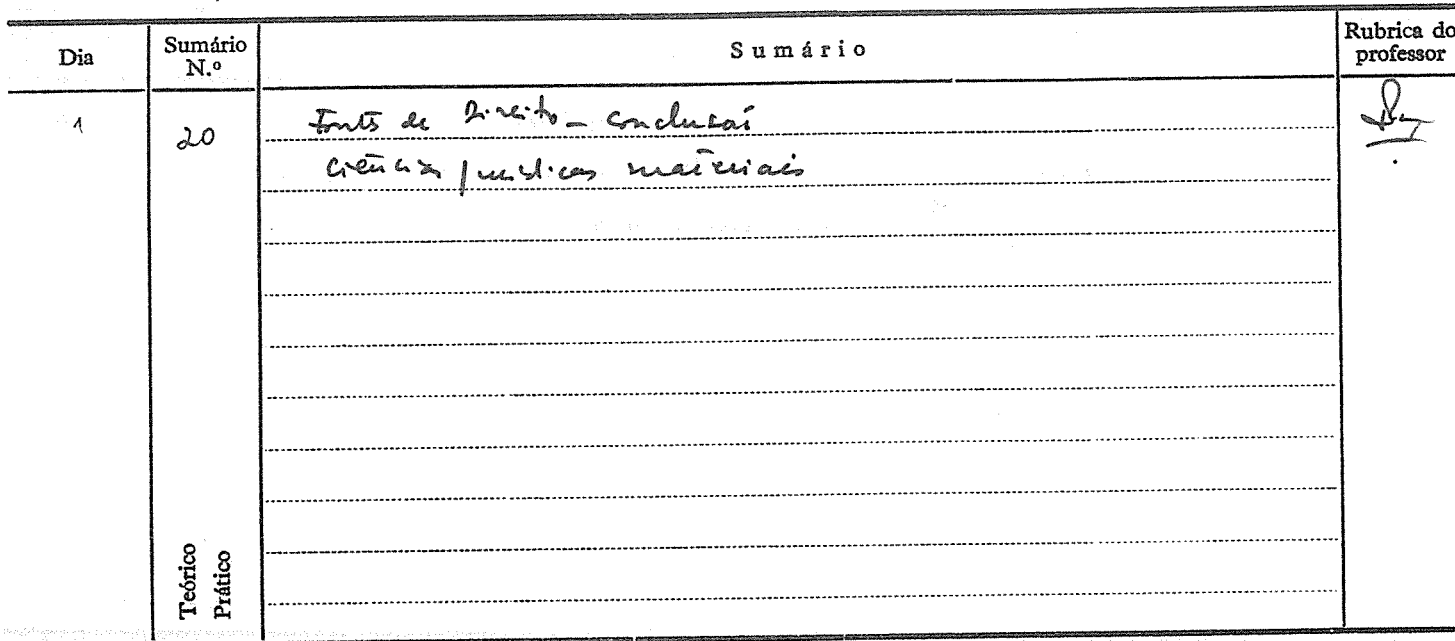 Dia
Sumário N.º
Sumário
Rubrica do professor
1
20
Fontes de Direito - conclusão
Ciências jurídicas materiais
Teórico
Prático